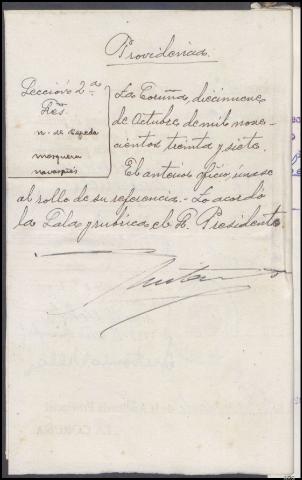 Providencia
Sección 2ª
Sres.
n. de Cepeda
Mosquera
navarrés
La Coruña, diecinueve
de Octubre de mil nove-
cientos treinta y siete.
El anterior oficio, únase
al rollo de su referencia.- Lo acordó
la Sala y rubrica el Sr. Presidente
LA CORUÑA